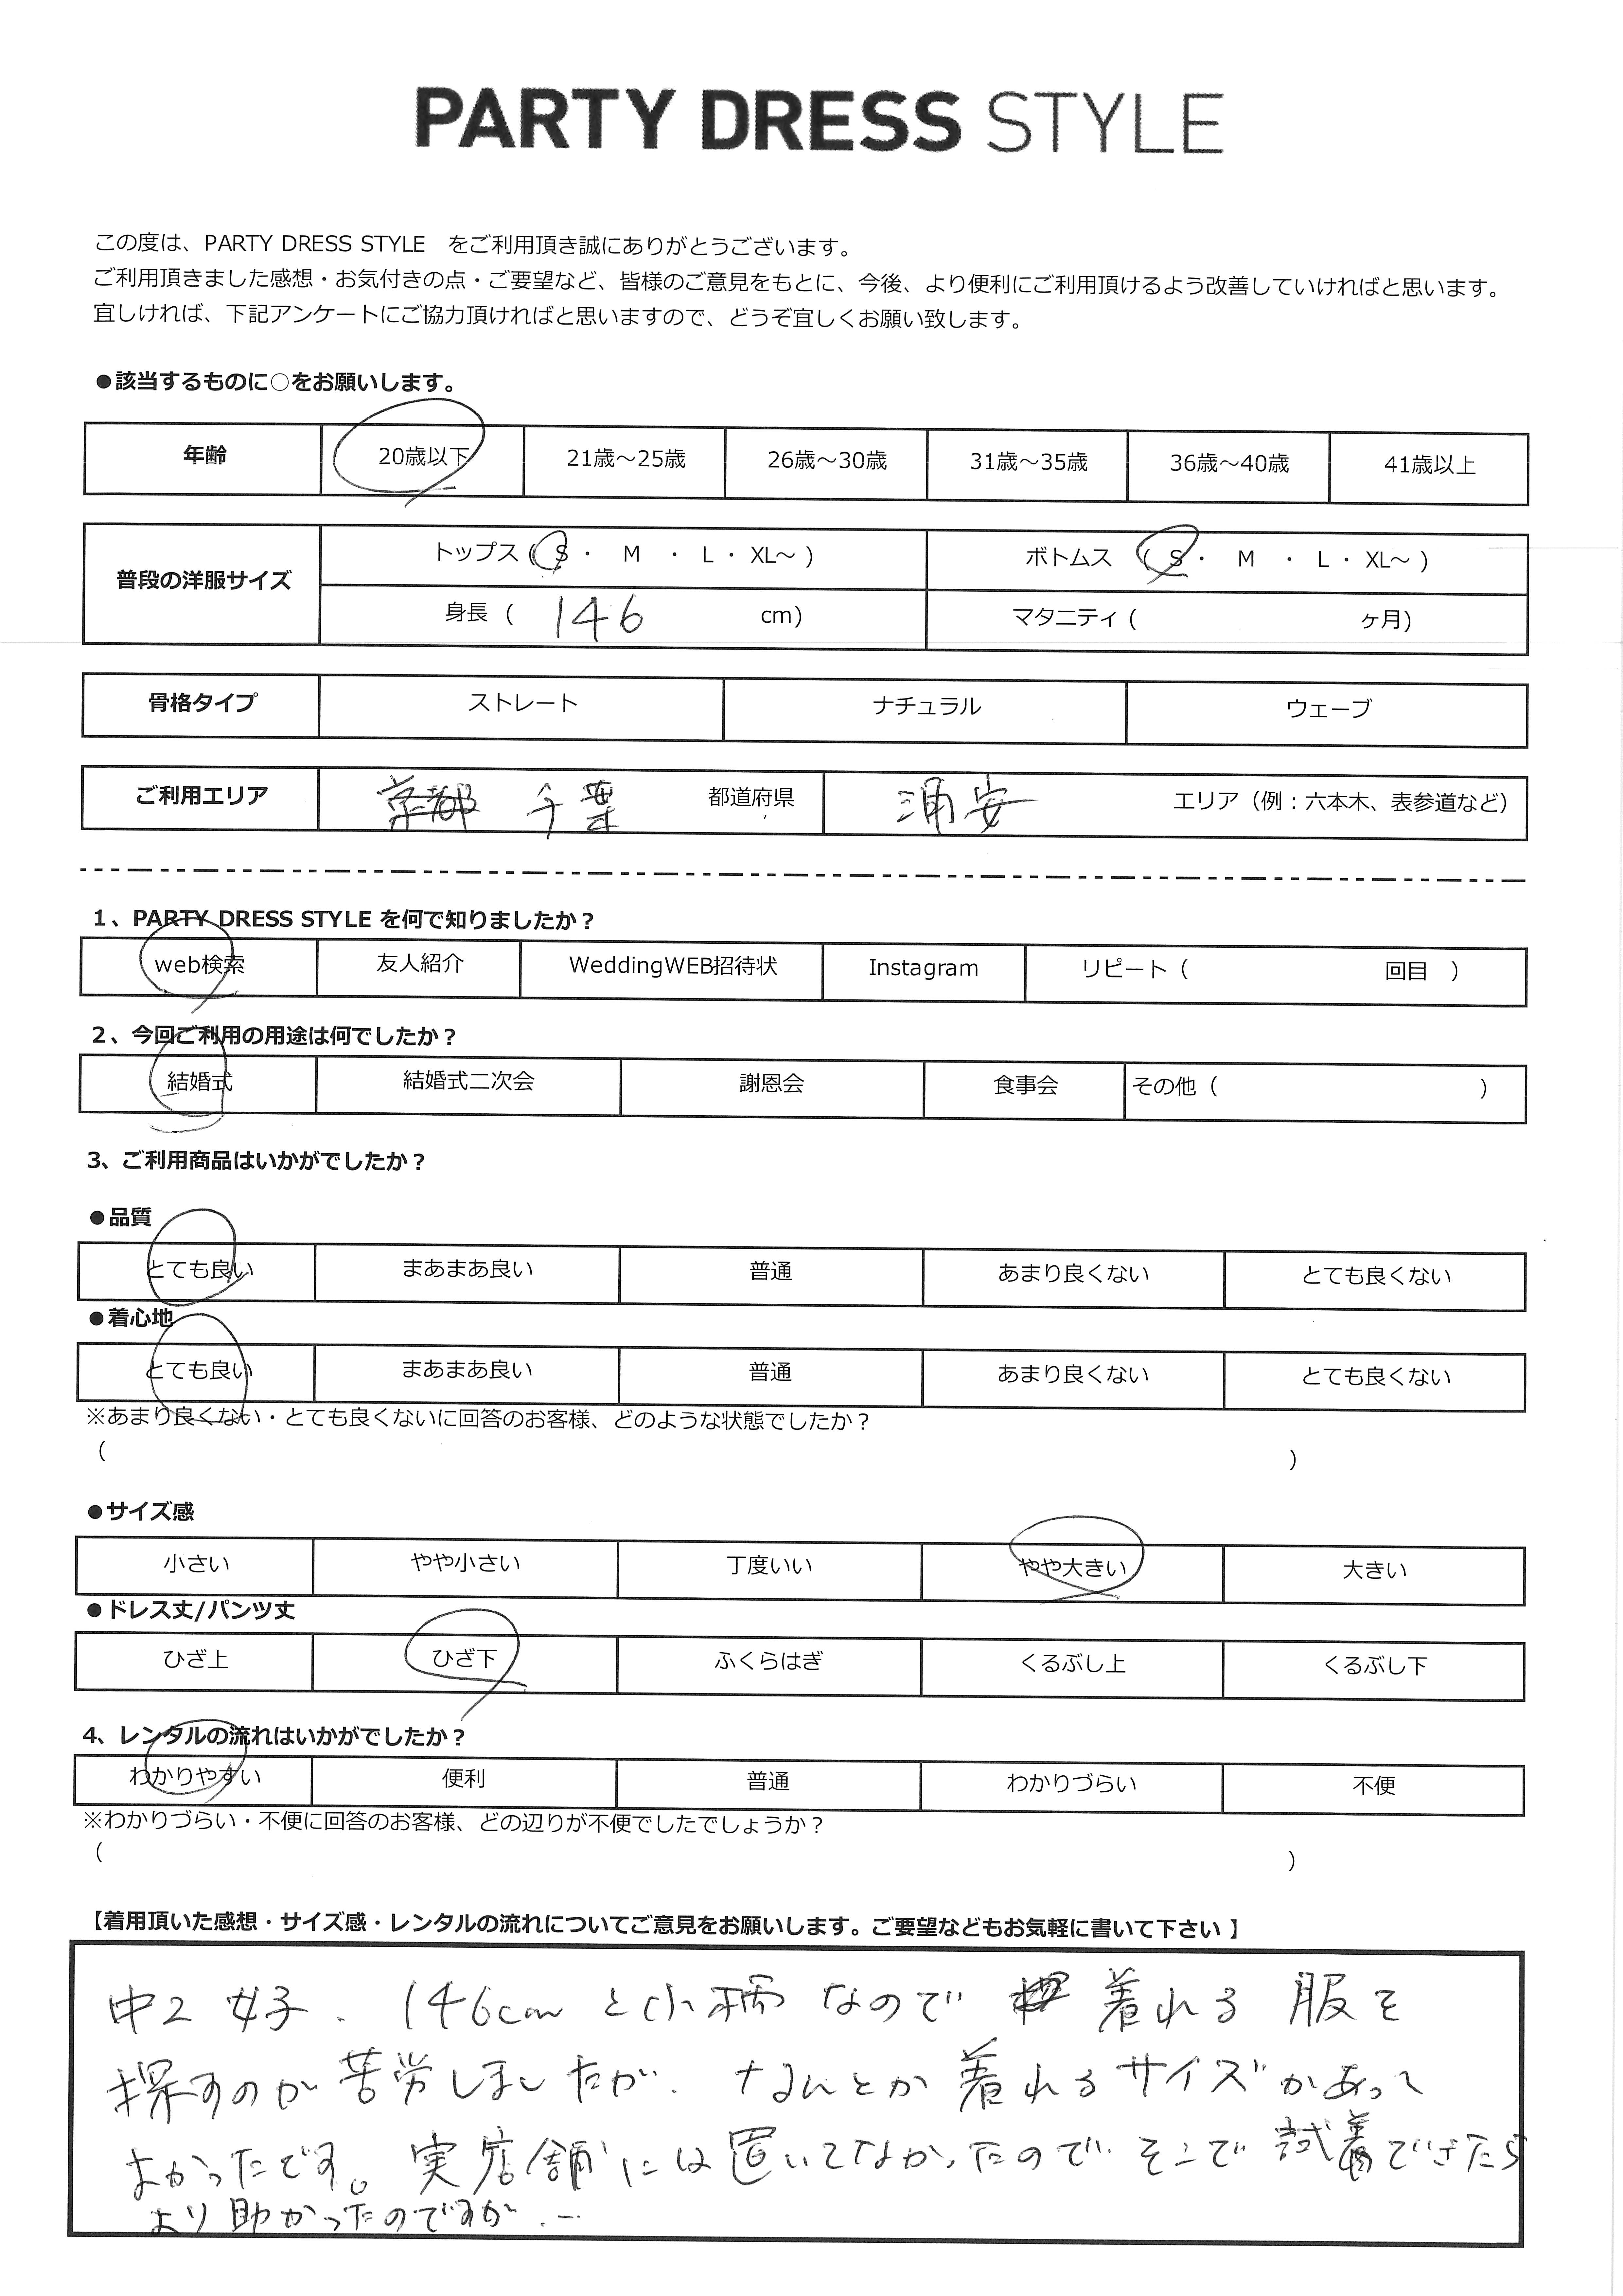 PARTY DRESS STYLE
この度は、PARTY DRESS STYLE をご利用頂き誠にありがとうございます。
ご利用頂きました感想・お気付きの点・ご要望など、皆様のご意見をもとに、今後、より便利にご利用頂けるよう改善していければと思います。
宜しければ、下記アンケートにご協力頂ければと思いますので、どうぞ宜しくお願い致します。
●該当するものに○をお願いします。
年齢 20歳以下 21歳～25歳 26歳～30歳 31歳～35歳 36歳～40歳 41歳以上
普段の洋服サイズ トップス ( S ・ M ・ L ・ XL～ ) ボトムス ( S ・ M ・ L ・ XL～ )
身長 ( 146 cm) マタニティ ( ヶ月)
骨格タイプ ストレート ナチュラル ウェーブ
ご利用エリア 京都 千葉 都道府県 浦安 エリア（例：六本木、表参道など）
1、PARTY DRESS STYLE を何で知りましたか？
web検索 友人紹介 WeddingWEB招待状 Instagram リピート（ 回目 ）
2、今回ご利用の用途は何でしたか？
結婚式 結婚式二次会 謝恩会 食事会 その他（ ）
3、ご利用商品はいかがでしたか？
●品質
とても良い まあまあ良い 普通 あまり良くない とても良くない
●着心地
とても良い まあまあ良い 普通 あまり良くない とても良くない
※あまり良くない・とても良くないに回答のお客様、どのような状態でしたか？
（ ）
●サイズ感
小さい やや小さい 丁度いい やや大きい 大きい
●ドレス丈/パンツ丈
ひざ上 ひざ下 ふくらはぎ くるぶし上 くるぶし下
4、レンタルの流れはいかがでしたか？
わかりやすい 便利 普通 わかりづらい 不便
※わかりづらい・不便に回答のお客様、どの辺りが不便でしたでしょうか？
（ ）
【着用頂いた感想・サイズ感・レンタルの流れについてご意見をお願いします。ご要望などもお気軽に書いて下さい 】
中2女子、146cmと小柄なので 着れる服を
探すのが苦労しましたが、なんとか着れるサイズがあって
よかったです。実店舗には置いてなかったので、そこで試着できたら
より助かったのですが…